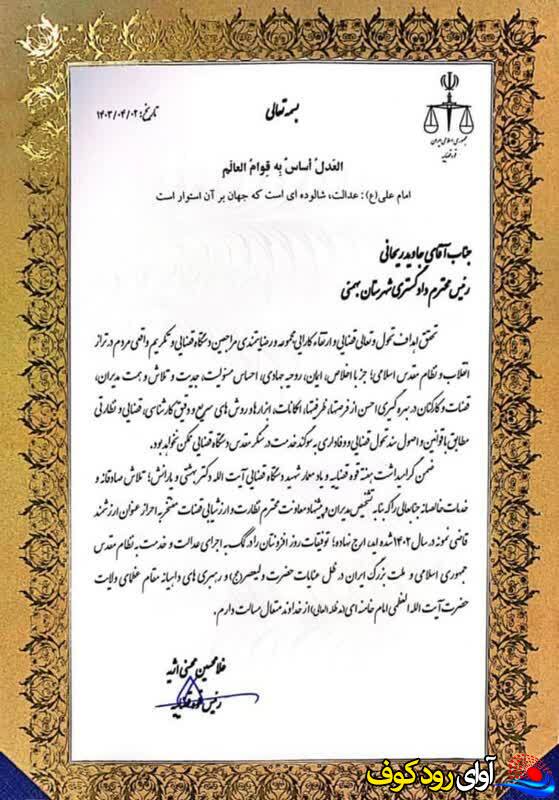 بسمه تعالی
تاریخ: ۱۴۰۳/۰۴/۰۲
جمهوری اسلامی ایران
قوه قضاییه
العَدلُ أساسٌ بِه قِوامُ العالَمِ
امام علی(ع): عدالت، شالوده ای است که جهان بر آن استوار است
جناب آقای جاوید ریحانی
رئیس محترم دادگستری شهرستان بهمئی
تحقق اهداف تحول و تعالی قضایی و ارتقاء کارآیی مجموعه و رضایتمندی مراجعین دستگاه قضایی و تکریم واقعی مردم در تراز
انقلاب و نظام مقدس اسلامی؛ جز با اخلاص، ایمان، روحیه جهادی، احساس مسئولیت، جدیت و تلاش و همت مدیران،
قضات و کارکنان در بهره گیری احسن از فرصتها، ظرفیتها، امکانات، ابزارها و روش های سریع و دقیق کارشناسی، قضایی و نظارتی
مطابق با قوانین و اصول سند تحول قضایی و وفاداری به سوگند خدمت در سنگر مقدس دستگاه قضایی ممکن نخواهد بود.
ضمن گرامیداشت هفته قوه قضاییه و یاد معمار شهید دستگاه قضایی آیت الله دکتر بهشتی و یارانش؛ تلاش صادقانه و
خدمات خالصانه جنابعالی را که بنا به تشخیص مدیران و پیشنهاد معاونت محترم نظارت و ارزشیابی قضات مفتخر به احراز عنوان ارزشمند
قاضی نمونه در سال ۱۴۰۲ شده اید، ارج نهاده؛ توفیقات روز افزونتان را در کمک به اجرای عدالت و خدمت به نظام مقدس
جمهوری اسلامی و ملت بزرگ ایران در ظل عنایات حضرت ولیعصر(عج) و رهبری های داهیانه مقام عظمای ولایت
حضرت آیت الله العظمی امام خامنه ای(مدظله العالی) از خداوند متعال مسالت دارم.
غلامحسین محسنی اژیه
رئیس قوه قضاییه
آوای رود کوف